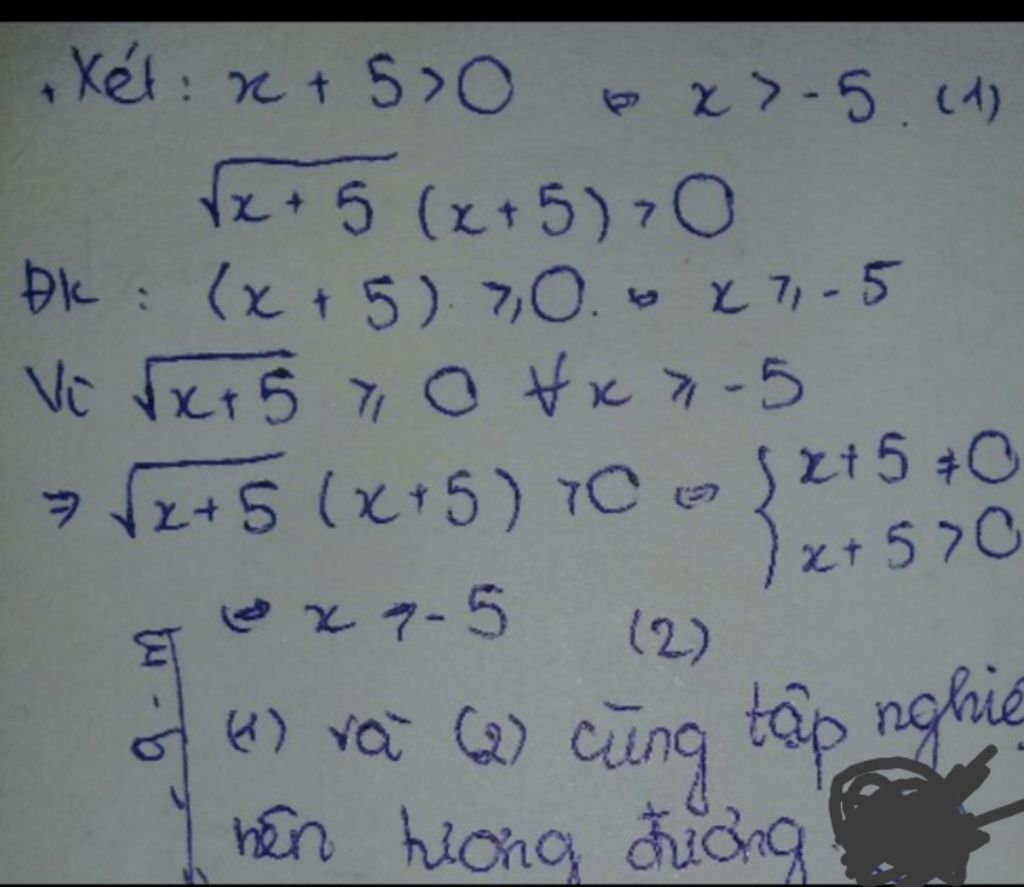 + Xét : x + 5 > 0 ⇔ x > -5. (1)
√(x + 5) (x + 5) > 0
Đk : (x + 5) ≥ 0. ⇔ x ≥ -5
Vì √(x + 5) ≥ 0 ∀x ≥ -5
⇒ √(x + 5) (x + 5) > 0 ⇔ { x + 5 ≠ 0
x + 5 > 0
⇔ x > -5 (2)
(1) và (2) cùng tập
nên tương đương